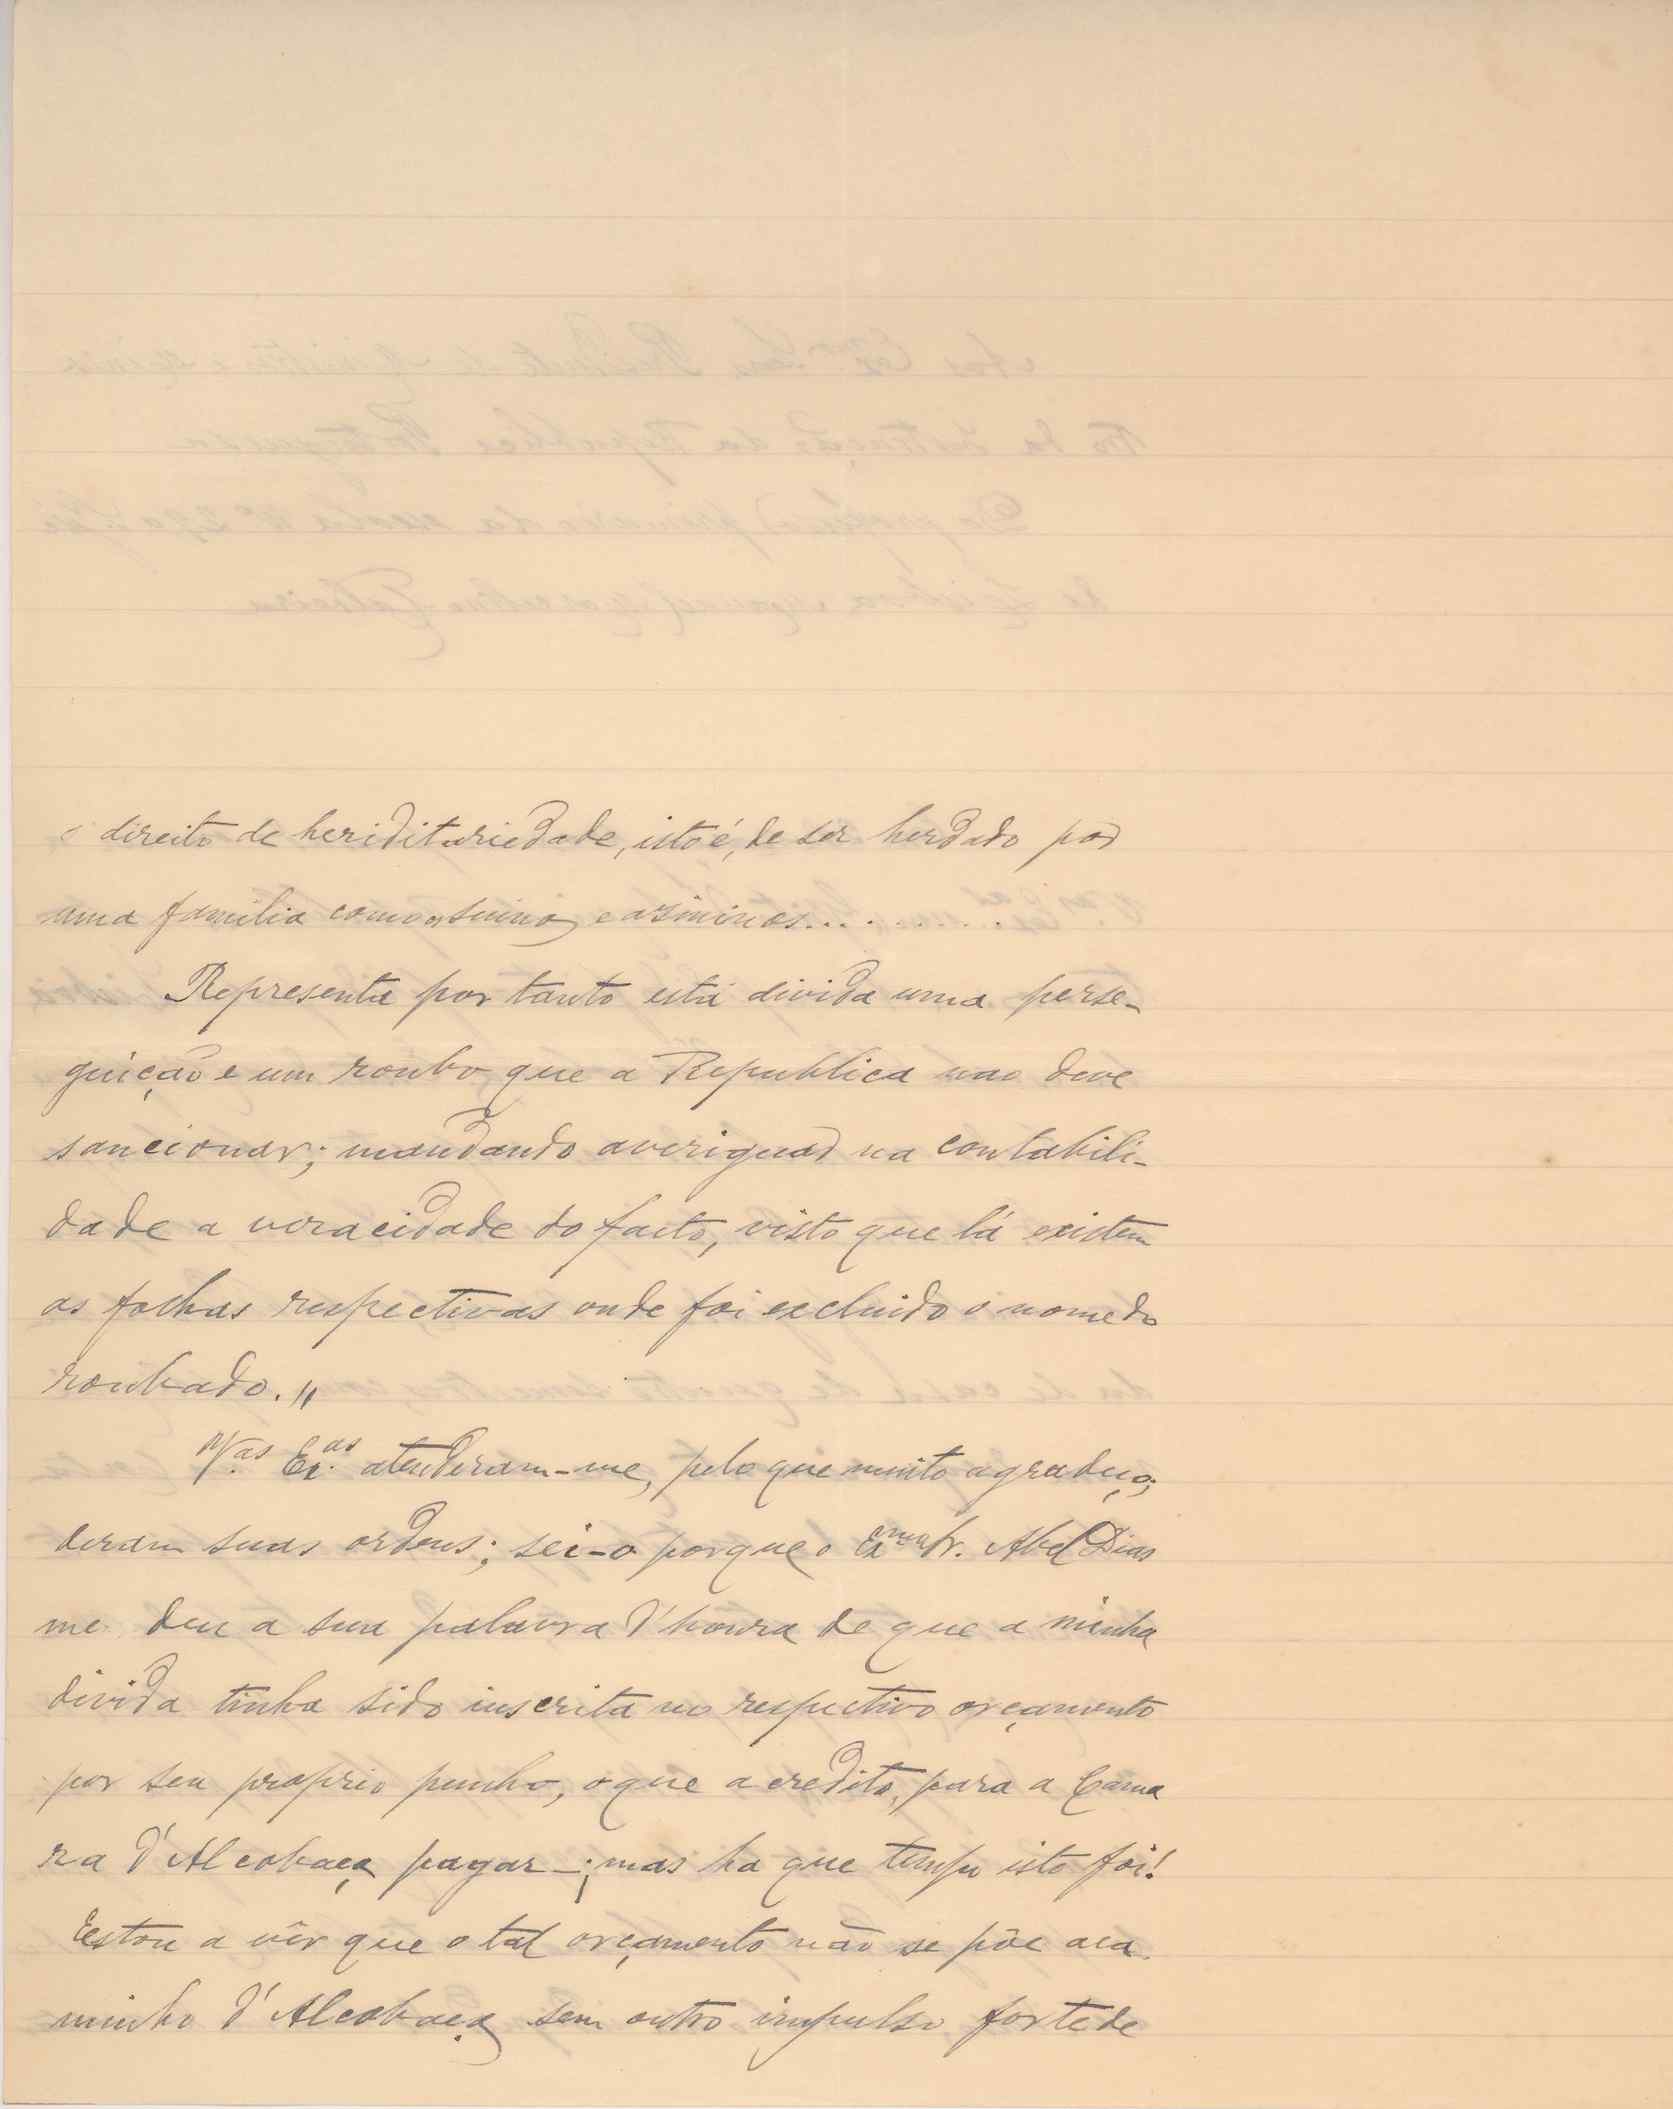 o direito de heriditariedade, isto é, de ser herdado por
uma familia como os suinos e asininos.........
Representa por tanto esta divida uma perse-
guição e um roubo que a Republica nao deve
sancionar; mandando averiguar na contabili-
dade a veracidade do facto, visto que lá existem
as folhas respectivas onde foi excluido o nome do
roubado.„
V.as Ex.as atenderam-me, pelo que muito agradeço;
deram suas ordens; sei-o porque o Exmo Sr. Abel Dias
me deu a sua palavra d'honra de que a minha
divida tinha sido inscrita no respectivo orçamento
por seu proprio punho, o que acredito, para a Cama
ra d'Alcobaça pagar-; mas ha que tempo isto foi!
Estou a vêr que o tal orçamento não se põe aca
minho d'Alcobaça sem outro impulso forte de